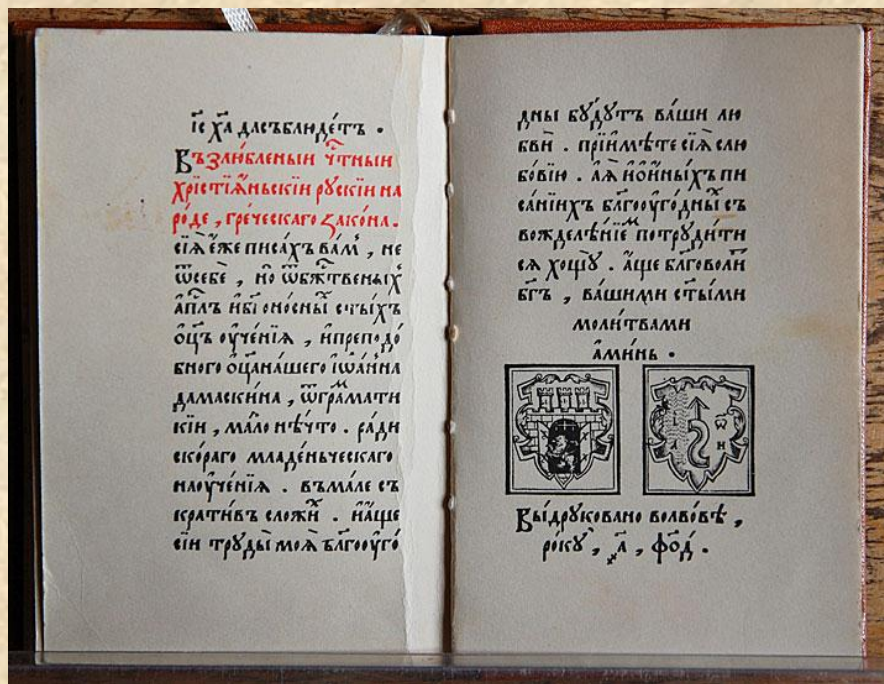 і҃с ха҃ да съблюде́тъ .
Възлю́бленыи че́тныи
хрістїа́ньскїи ру́скїи на
ро́де , гре́ческаго зако́на .
сїѧ̀ е́же писа́хъ ва́мъ , не
ѿ себѐ , но ѿ бж҃твеныⷯ
а҃плъ и бг҃оно́сныⷯ ст҃ы́хъ
ѻ҃цъ оу҆че́нїѧ , и҆ преподо́
бного ѻ҃ца на́шего і҆ѡа́нна
дамаски́на , ѿ гра́мати
кїи , ма́ло нѣ́что . ра́ди
ско́раго младе́ньческаго
наоу҆че́нїѧ . въма́ле съ
крати́въ сложи́хъ . и҆ а҆́ще
сїи труды̀ моѧ̀ бл҃гооу҆го́
дны бу́дутъ ва́ши лю
бви . прїими́те сїѧ̀ с лю
бо́вїю . а҆ ѧ҆̀ и҆ ѻ҆ и҆́ныхъ пи
са́нїихъ бл҃гооу҆го́дныⷯ съ
вожделѣ́нїемъ потруди́ти
сѧ хощу̀ . а҆́ще бл҃говоли́тъ
бг҃ъ , ва́шими ст҃ы́ми
моли́твами
а҆ми́нь .
І ѡ
А Н
Вы́друковано во льво́вѣ ,
ро́ку , ҂а҃ , фо҃д .